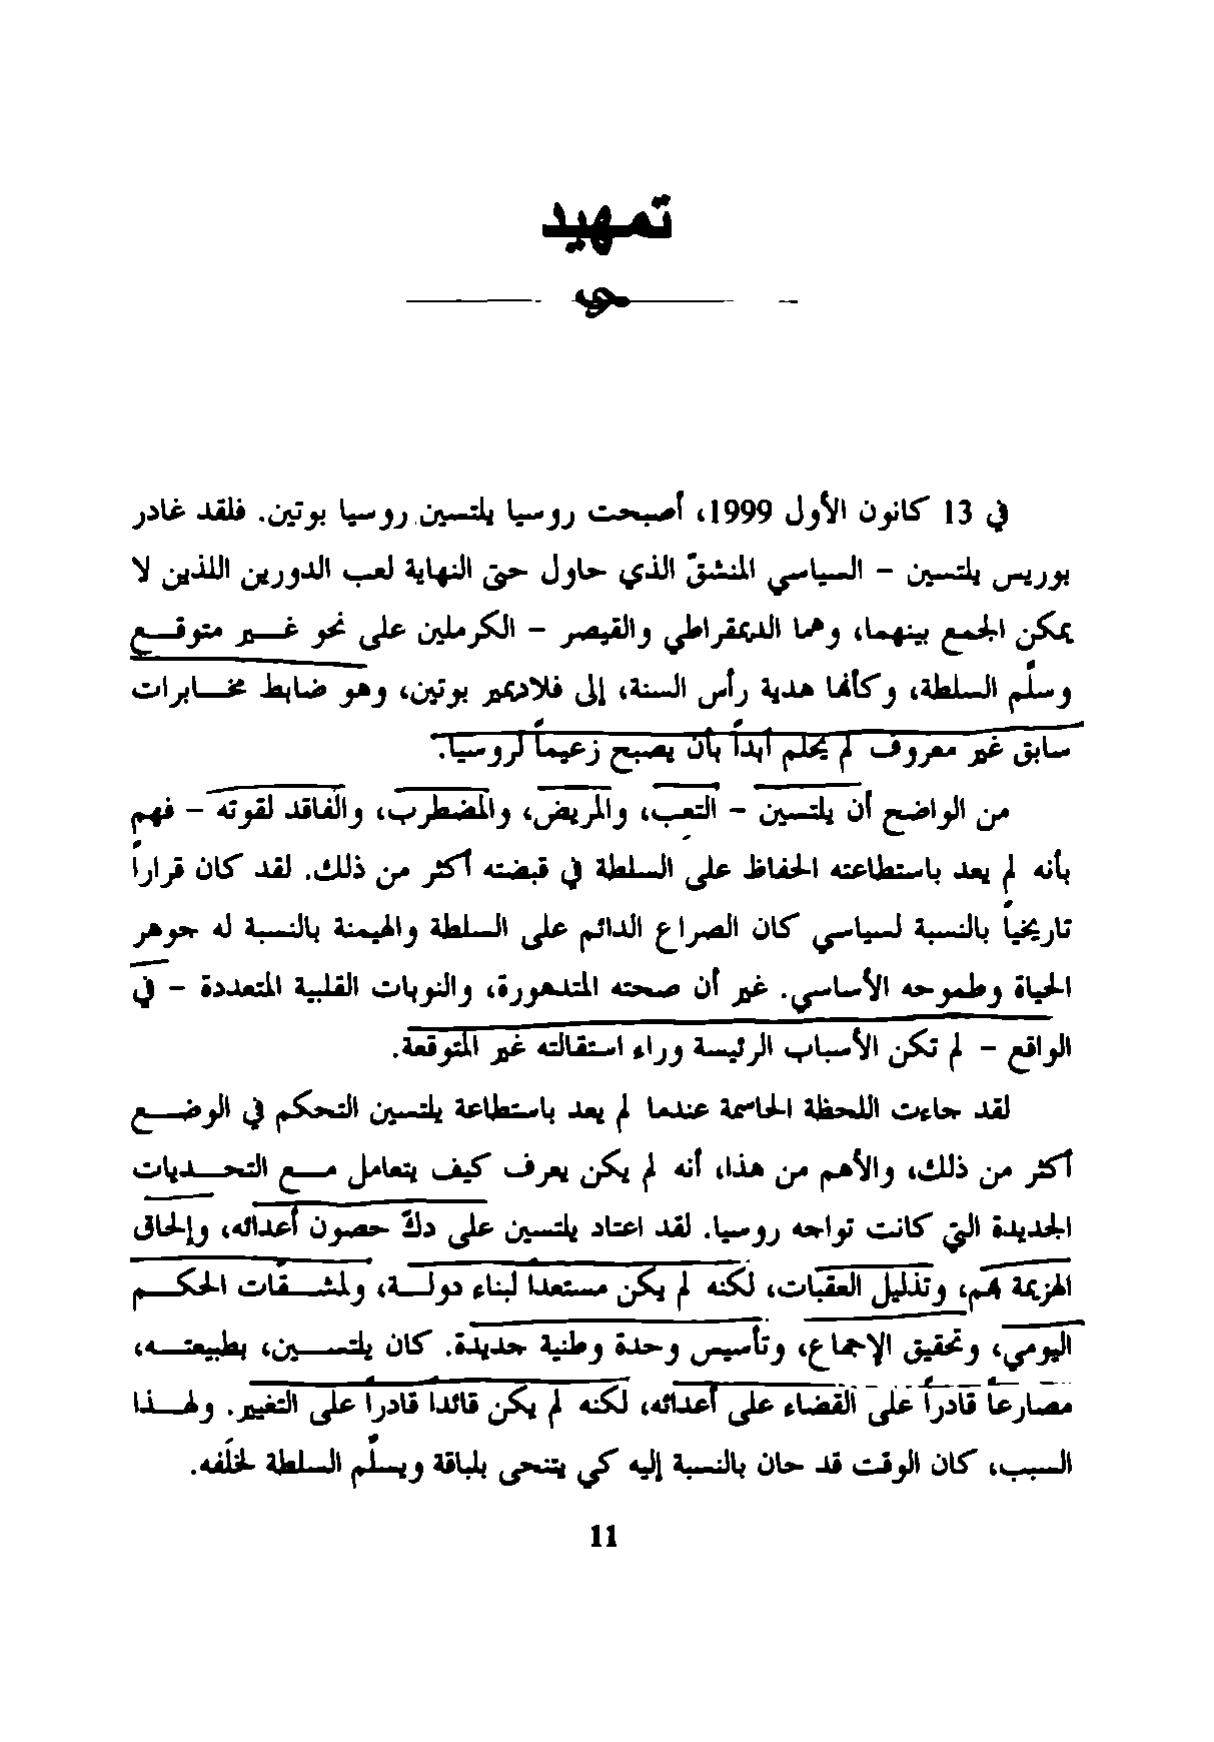 تمهيد
في 13 كانون الأول 1999، أصبحت روسيا يلتسين روسيا بوتين. فلقد غادر
بوريس يلتسين – السياسي المنشقّ الذي حاول حتى النهاية لعب الدورين اللذين لا
يمكن الجمع بينهما، وهما الديمقراطي والقيصر – الكرملين على نحو غير متوقع
وسلّم السلطة، وكأنها هدية رأس السنة، إلى فلاديمير بوتين، وهو ضابط مخابرات
سابق غير معروف لم يحلم أبداً بأن يصبح زعيماً لروسيا.
من الواضح أن يلتسين – التعب، والمريض، والمضطرب، والفاقد لقوته – فهم
بأنه لم يعد باستطاعته الحفاظ على السلطة في قبضته أكثر من ذلك. لقد كان قراراً
تاريخياً بالنسبة لسياسي كان الصراع الدائم على السلطة والهيمنة بالنسبة له جوهر
الحياة وطموحه الأساسي. غير أن صحته المتدهورة، والنوبات القلبية المتعددة – في
الواقع – لم تكن الأسباب الرئيسة وراء استقالته غير المتوقعة.
لقد جاءت اللحظة الحاسمة عندما لم يعد باستطاعة يلتسين التحكم في الوضع
أكثر من ذلك، والأهم من هذا، أنه لم يكن يعرف كيف يتعامل مع التحديات
الجديدة التي كانت تواجه روسيا. لقد اعتاد يلتسين على دكّ حصون أعدائه، وإلحاق
الهزيمة بهم، وتذليل العقبات، لكنه لم يكن مستعداً لبناء دولة، ولمشقّات الحكم
اليومي، وتحقيق الإجماع، وتأسيس وحدة وطنية جديدة. كان يلتسين، بطبيعته،
مصارعاً قادراً على القضاء على أعدائه، لكنه لم يكن قائداً قادراً على التغيير. ولهذا
السبب، كان الوقت قد حان بالنسبة إليه كي يتنحى بلباقة ويسلّم السلطة لخلَفه.
11